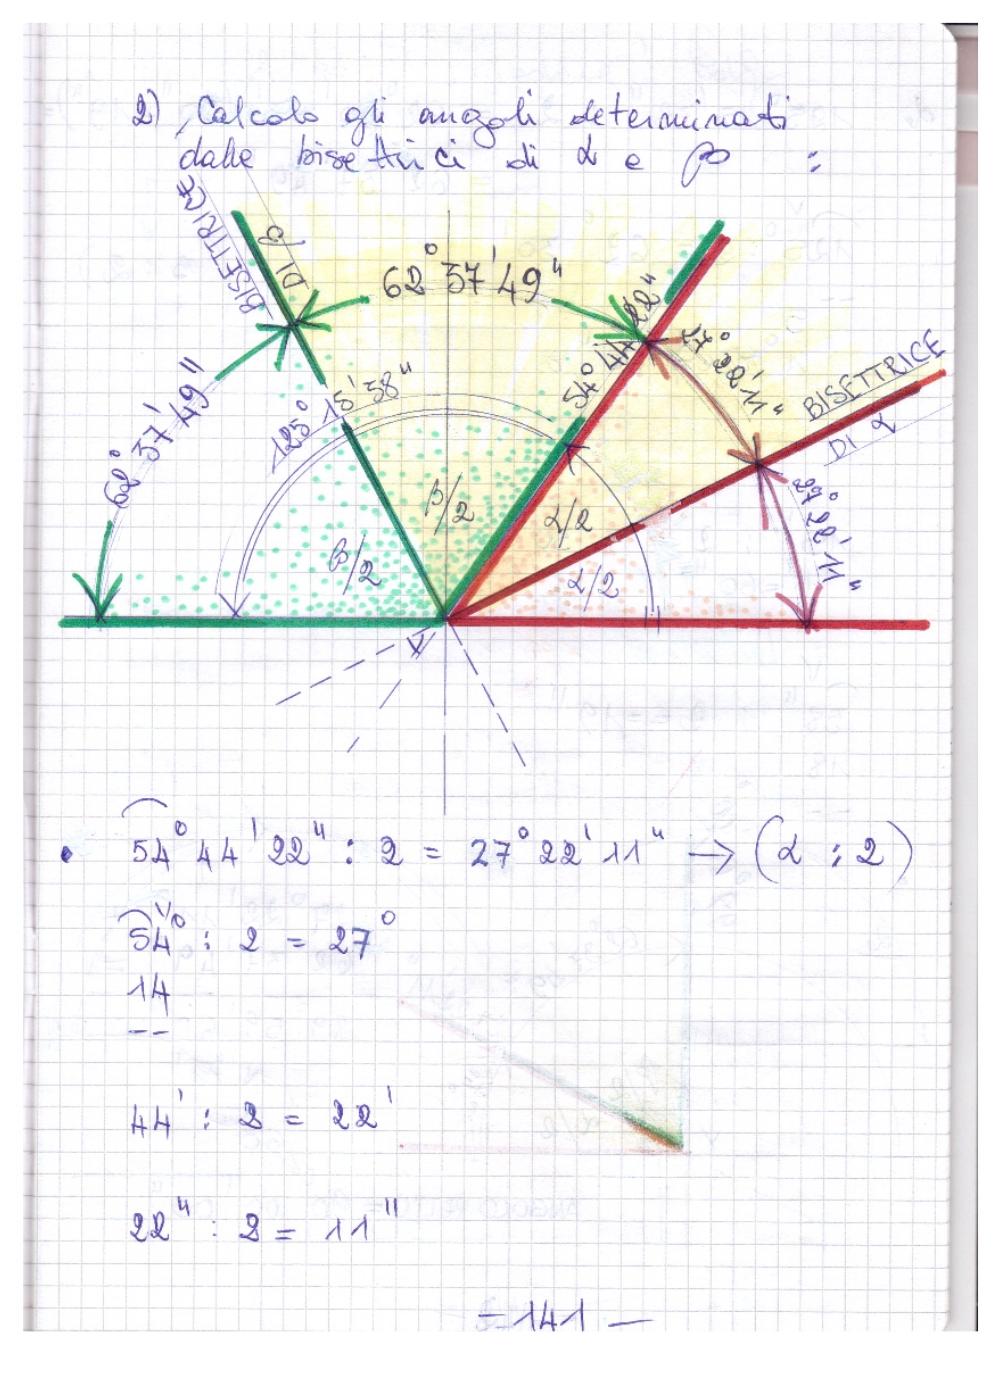 2) Calcolo gli angoli determinati
dalle bisettrici di α e β :
BISETTRICE
DI β
62° 37' 49"
62° 37' 49"
125° 15' 38"
54° 44' 22"
27° 22' 11"
BISETTRICE
DI α
27° 22' 11"
β/2
β/2
α/2
α/2
V
• 54° 44' 22" : 2 = 27° 22' 11" → (α : 2)
54° : 2 = 27°
14
--
44' : 2 = 22'
22" : 2 = 11"
- 141 -